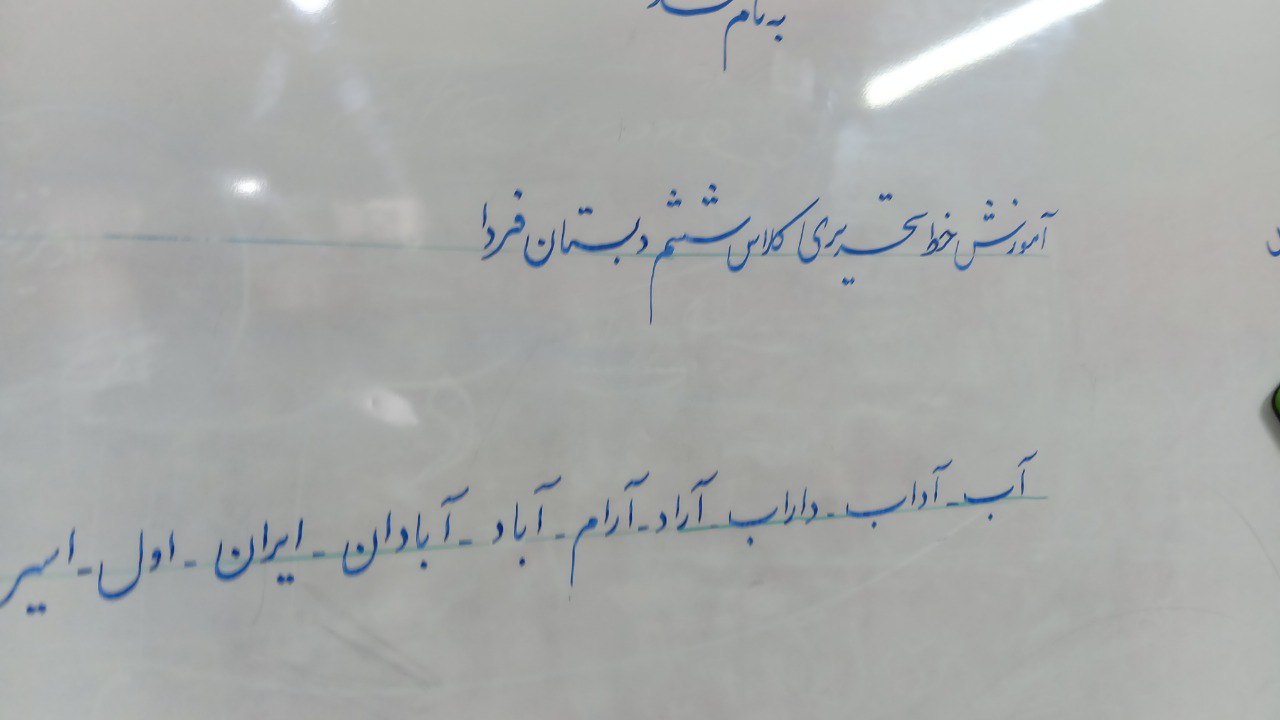 به نام
آموزش خط تحریری کلاس ششم دبستان فردا
آب - آداب - داراب - آراد - آرام - آباد - آبادان - ایران - اول - اسیر